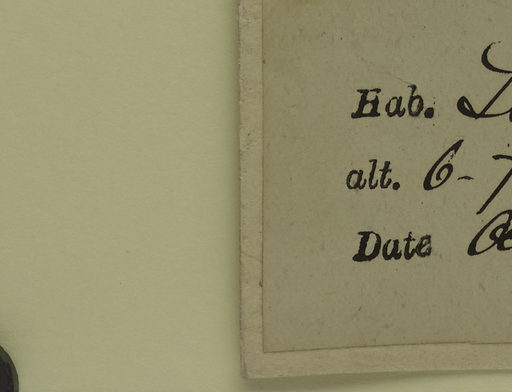 Hab.
alt. 6-7
Date